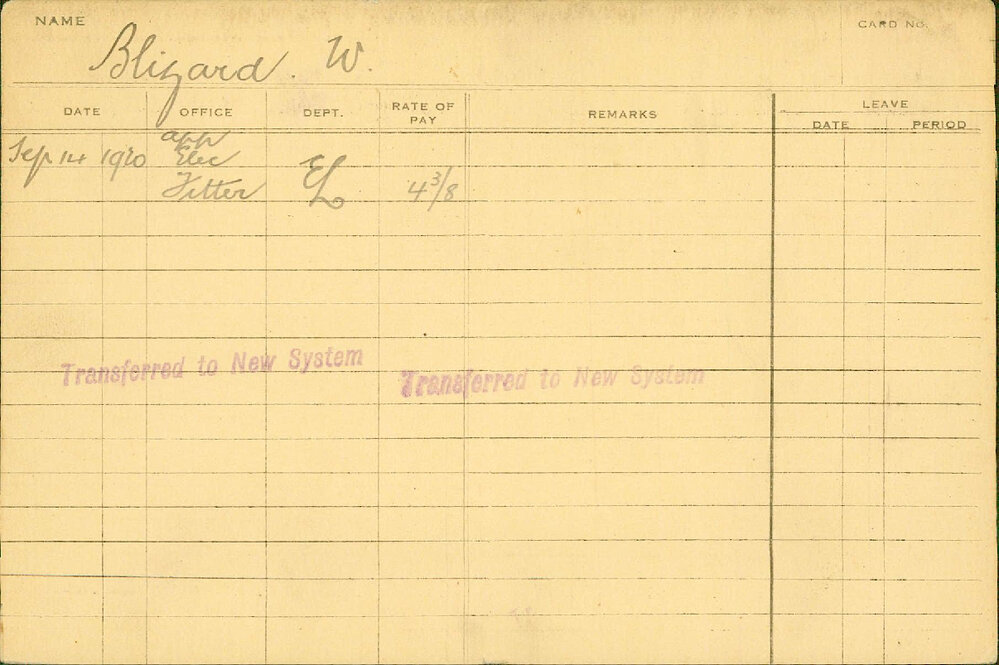 NAME
CARD No.
Blizard. W.
DATE OFFICE DEPT. RATE OF PAY REMARKS LEAVE
DATE PERIOD
Sep 14 1920 app
Elec
Fitter EL 4 3/8
Transferred to New System Transferred to New System